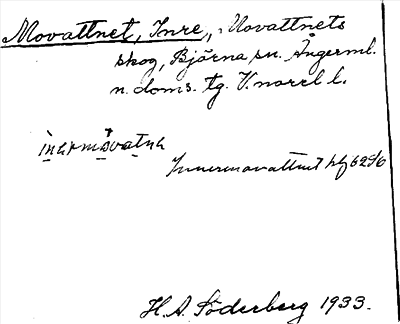 Movattnet, Inre, Movattnets
skog, Björna sn. Ångerml.
n. doms. tg. V. norrl l.
Innermovattnet
H. A. Söderberg 1933.